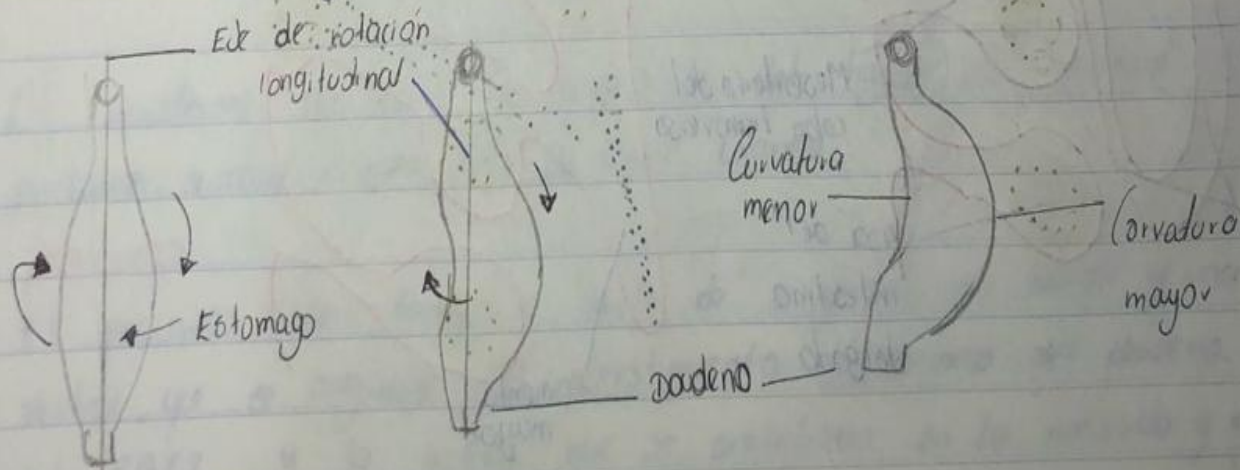 Eje de rotación
longitudinal
Estomago
Doudeno
Curvatura
menor
Corvatura
mayor